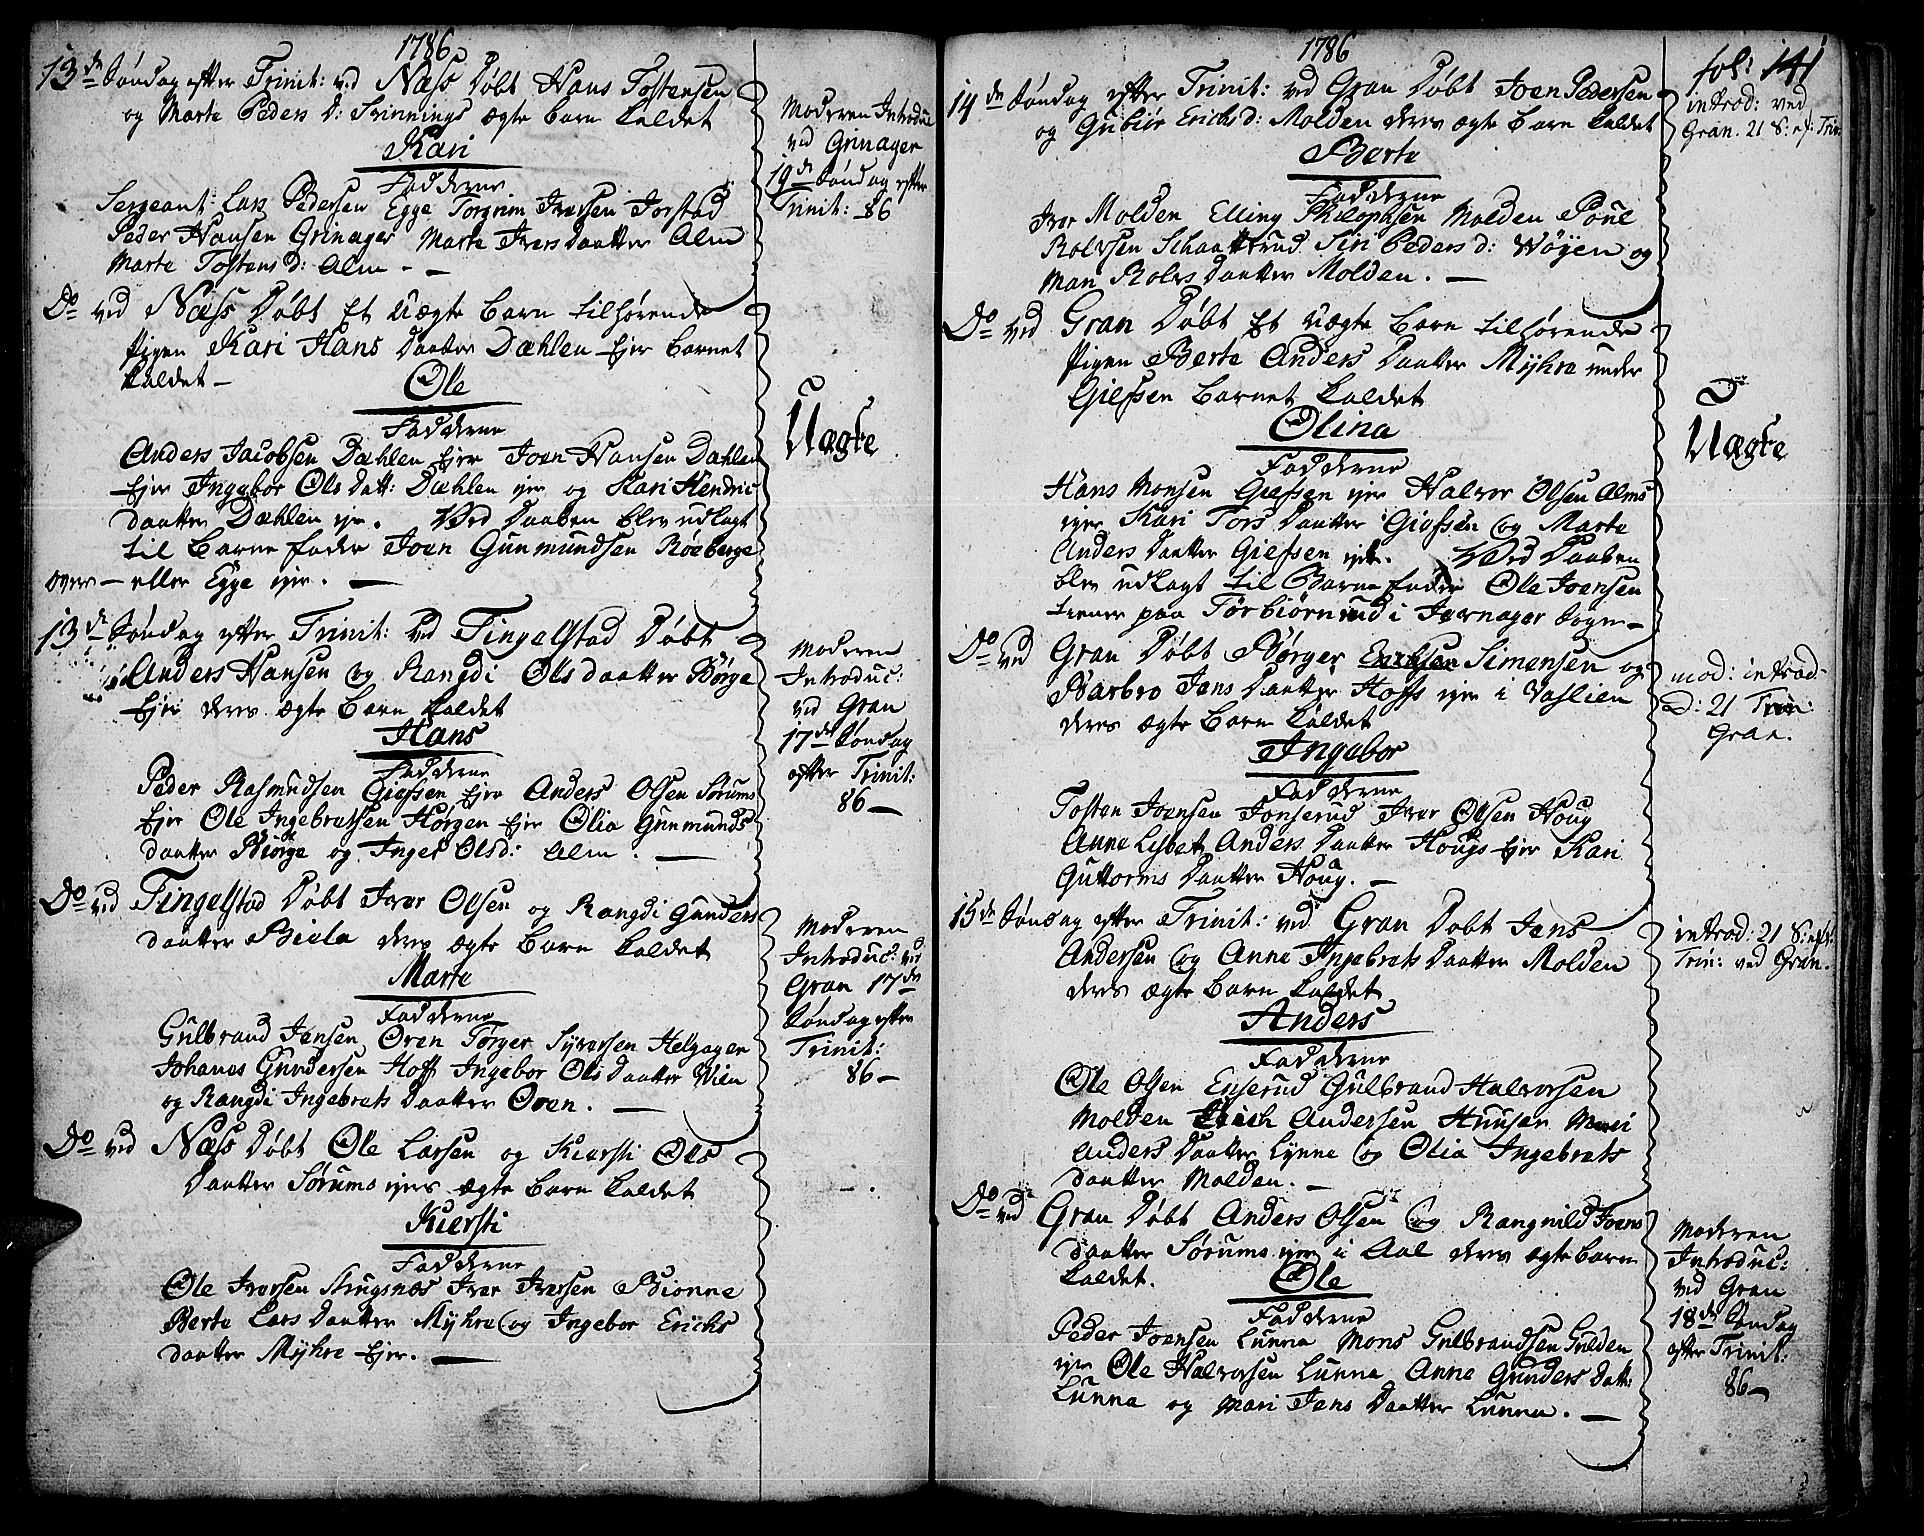 1786
13de Søndag efter Trinit: ved Næss Døbt Hans Tostensen
og Marte Peders D: Trinnings ægte barn kaldet
Kari
Fadderne
Sergeant: Lars Pedersen Egge Torgrim Iversen Jorstad
Peder Hansen Grinager Marte Ivers Daatter Alm
Marte Tostens d: Alm. -
Moderen Introduc
ved Grinager
19de Søndag efter
Trinit: 86
Do ved Næss Døbt Et Uægte barn tilhørende
Pigen Kari Hans Daatter Dæhlen Ejer barnet
kaldet -
Ole
Fadderne
Anders Jacobsen Dæhlen Ejer Joen Hansen Dæhlen
Ejer Ingebor Ols Datt: Dæhlen ejer og Kari Hendric
daatter Dæhlen eje. Ved Daaben blev udlagt
til Barne fader Joen Gunmundsen Røeberge
over - eller Egge ejer. -
Uægte
13de Søndag efter Trinit: ved Tingelstad Døbt
Anders Hansen og Rangdi Ols daatter Børge
Ejer deres ægte Barn kaldet
Hans
Fadderne
Peder Rasmudsen Giefsen Ejer Anders Olsen Sørums
Ejer Ole Ingebretsen Horgen Ejer Olia Gunmunds
daatter Biørge og Inger Olsd: Alm. -
Moderen
Introduc:
ved Gran
17de Søndag
efter Trinit:
86 -
Do ved Tingelstad Døbt Iver Olsen og Rangdi Gunders
daatter Biela deres ægte Barn kaldet
Marte
Fadderne
Gulbrand Jensen Oren Torger Syversen Helgager
Johanes Gundersen Hoff Ingebor Ols Daatter Wien
og Rangdi Ingebrets Daatter Oren. -
Moderen
Introduc: ved
Gran 17de
Søndag efter
Trinit:
86 -
Do ved Næss Døbt Ole Larsen og Kiersti Ols
Daatter Sørums ejers ægte Barn kaldet
Kiersti
Fadderne
Ole Iversen Skugsnæs Iver Iversen Bionne
Berte Lars Daatter Myhre og Ingebor Erichs
daatter Myhre Ejer. -
1786
fol: 141
14de Søndag efter Trinit: ved Gran Døbt Joen Pedersen
og Gubiør Erichs d: Molden deres ægte Barn kaldet
Berte
Fadderne
Iver Molden Elling Molden Poul
Rolvsen Schaattrud Siri Peders d: Wøyen og
Mari Rolvs Daatter Molden. -
introd: ved
Gran. 21 S: ef: Trin:
Do ved Gran Døbt Et Uægte Barn tilhørende
Pigen Berte Anders Daatter Myhre under
Giefsen Barnet kaldet
Olina
Fadderne
Hans Monsen Giefsen ejer Halvor Olsen Alms
ejer Kari Tors Daatter Giefsen og Marte
Anders Daatter Giefsen eje. Ved Daaben
blev udlagt til Barne fader Ole Joensen
tiener paa Torbiørnrud i Jevnager Sogn -
Uægte
Do ved Gran Døbt Børger Simensen og
Barbro Jens Daatter Hoffs ejer i Vaslien
deres ægte Barn kaldet
Ingebor
Fadderne
Tosten Joensen Jonserud Iver Olsen Houg
Anne Lisbet Anders Daatter Hougs Ejer Kari
Guttorms Daatter Houg. -
mod: introd:
D: 21 Trin:
Gran.
15de Søndag efter Trinit: ved Gran Døbt Jens
Andersen og Anne Ingebrets Daatter Molden
deres ægte Barn kaldet
Anders
Fadderne
Ole Olsen Enserud Gulbrand Halvorsen
Molden Erich Andersen Hensar Mari
Anders Daatter Lynne og Olia Ingebrets
daatter Molden. -
introd: 21 S: eft:
Trin: ved Gran.
Do ved Gran Døbt Anders Olsen og Rangnild Joens
daatter Sørums ejer i Aal deres ægte Barn
kaldet.
Ole
Fadderne
Peder Joensen Lunna Mons Gulbrandsen Gulden
ejer Ole Halvorsen Lunna Anne Gunders Datt:
Lunna og Mari Jens Daatter Lunna. -
Moderen
Introduc:
ved Gran
18de Søndag
efter Trinit:
86 -